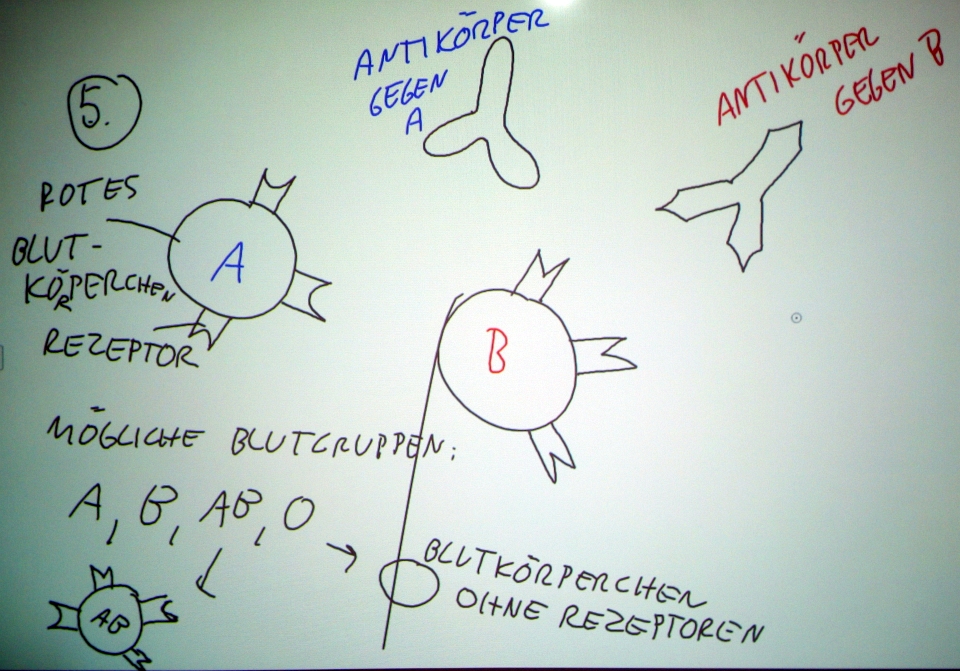 5.
ANTIKÖRPER
GEGEN
A
ANTIKÖRPER
GEGEN B
ROTES
BLUT-
KÖRPERCHEN
REZEPTOR
A
B
MÖGLICHE BLUTGRUPPEN:
A, B, AB, O
AB
BLUTKÖRPERCHEN
OHNE REZEPTOREN